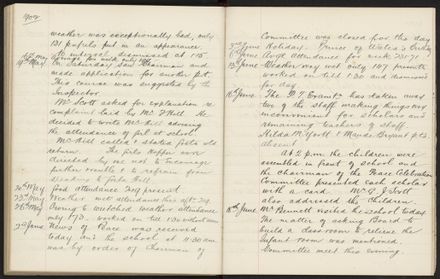 1902
weather was exceptionally bad, only
131 pupils put in an appearance.
No interval, dismissed at 1.15
14th May
19th May On Saturday saw Chairman and
made application for another p.t.
This course was suggested by the
Inspector.
Mr Scott asked for explanation re
complaint laid by Mr J Hill. He
decided to write Mr Hill advising
the attendance of girl at school
Mr Hill called & stated facts
return. The
directed by me not to encourage
further trouble & to refrain from
20th May Good attendance 209 present
23rd May Weather wet attendance this aft. 209
26th May Owing to wretched weather attendance
only 170. worked on till 1.30 without interval
2nd June News of Peace was received
today and the school at 11.30 am
was by order of Chairman of
Committee was closed for the day
3rd June Holiday. Prince of Wales's Birthday
6th June Avge attendance for week 237.1
13th June Weather very wet only 107 present
worked on till 1.30 and dismissed
for day
16th June The P.T. Exam has taken away
two of the staff making things very
inconvenient for scholars and
remaining teachers of staff.
Hilda M Scott & Maude Bryant p.ts.
absent
At 2 p.m. the children were
assembled in front of school and
the Chairman of the Peace Celebration
Committee presented each scholar
with a card. Mr G J Scott
also addressed the children.
Mr Bennett visited the school today
The matter of asking Board to
build a class room to relieve the
infant room was mentioned.
Committee meet this evening.